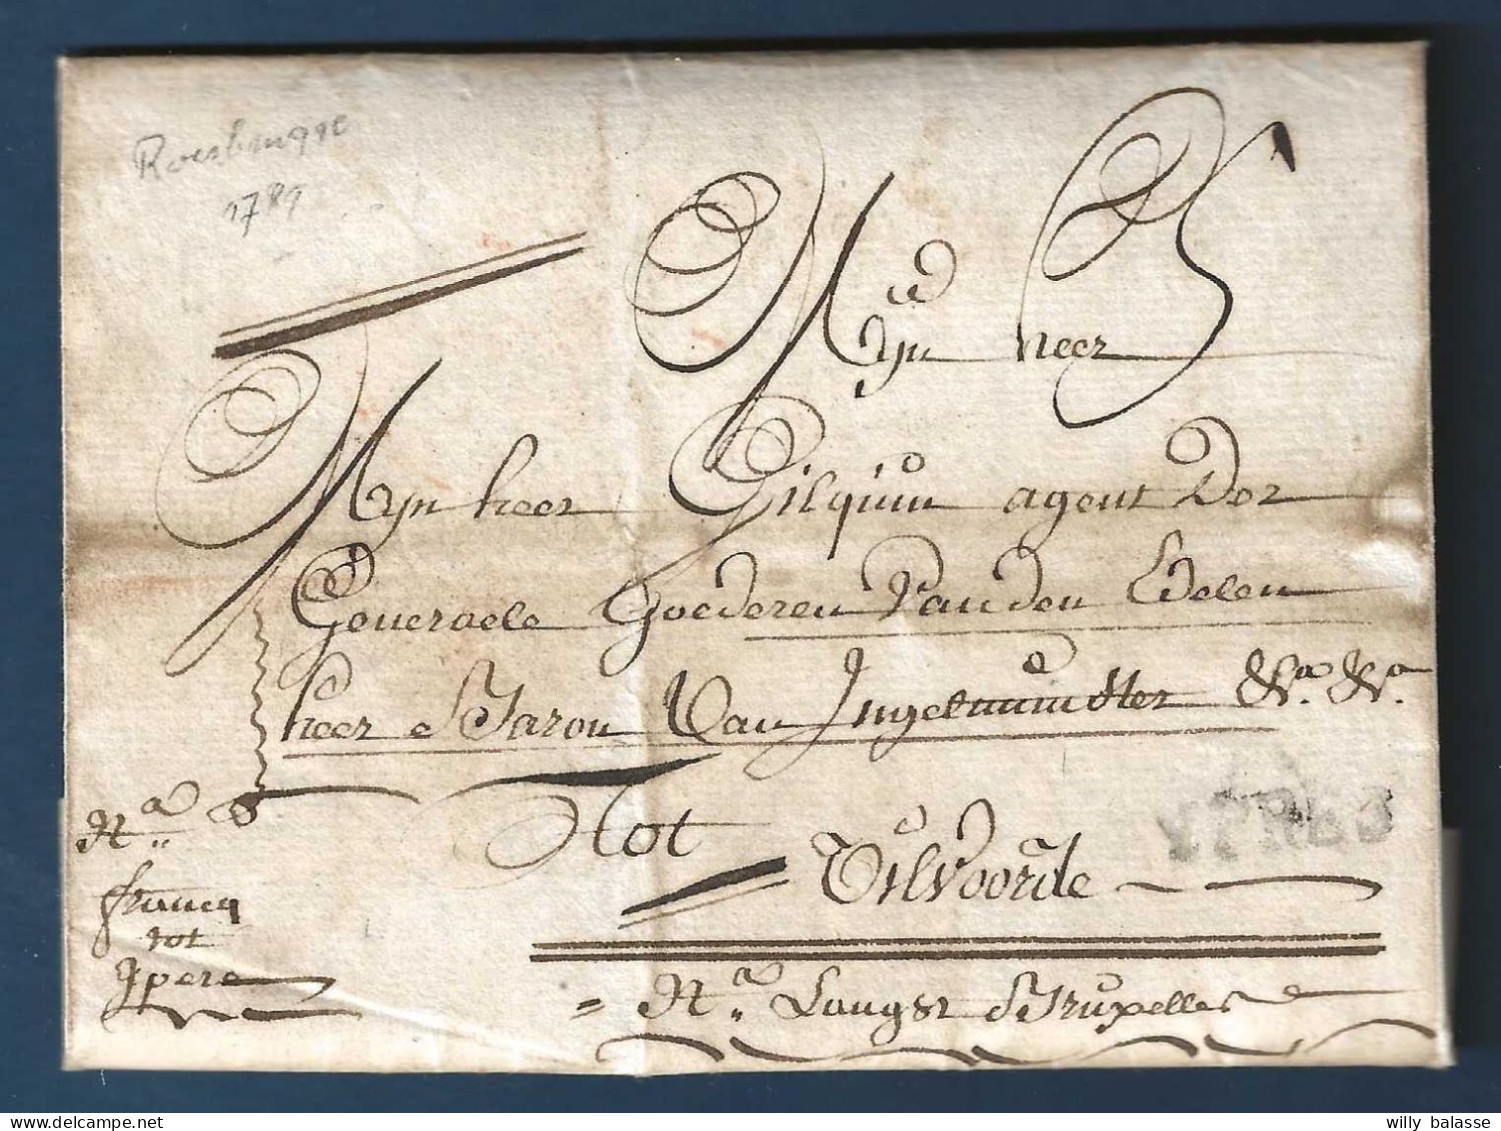 Roesbrugge
1789
Myn heer
Myn heer Gilquin agent Der
Generaele Goederen Van den Edelen
heer Baron Van Ingelmunster &a. &a.
Tot
YPRES
Vilvoorde
Na. 8
francq
tot
Ipere
= Na. Langst Bruxelles
willy balasse